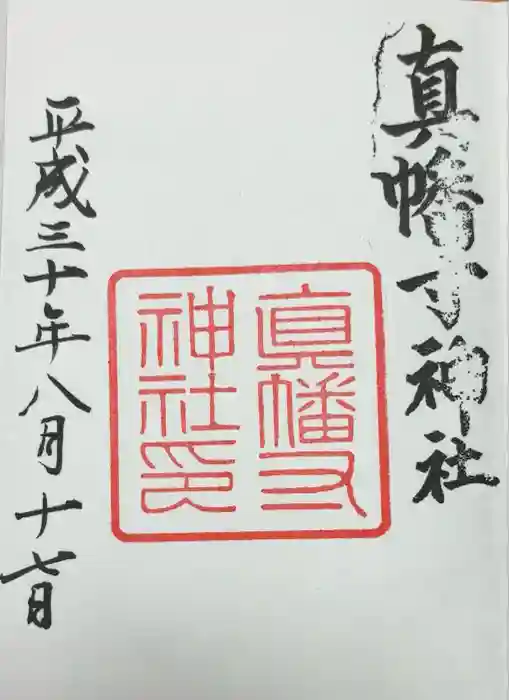 真幡寸神社
真幡寸
神社印
平成三十年八月十七日